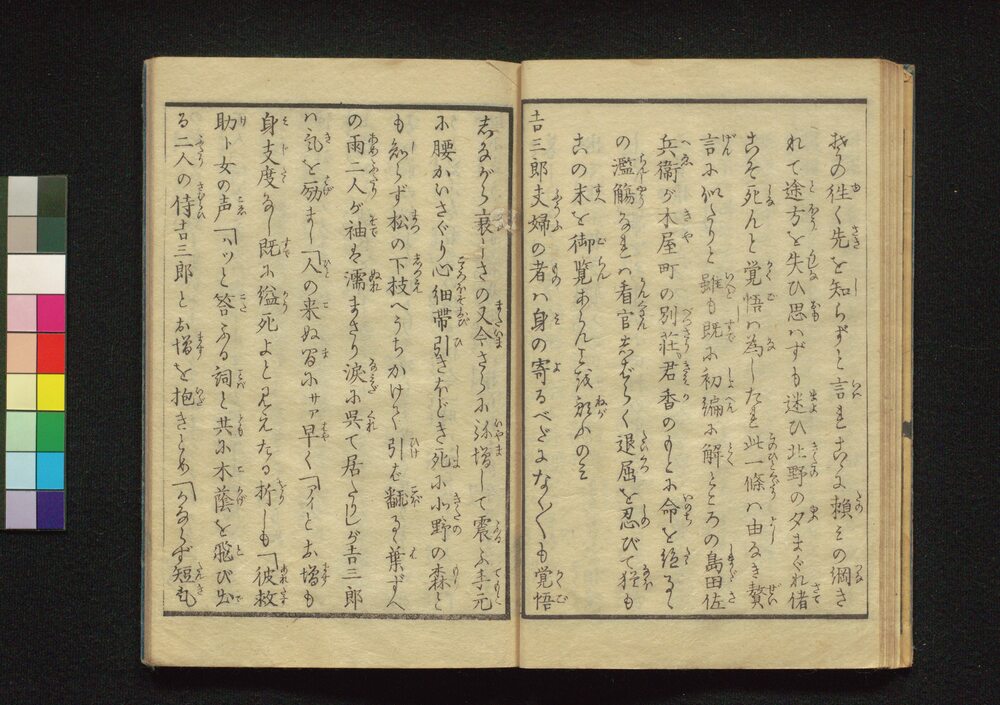 於の往く先を知らずと言まゝこゝに頼みの綱き
れて途方を失ひ思はずも迷ひ北野の夕まぐれ偖
こそ死んと覚悟は為したれ此一條は由なき贅
言に似たりと雖も既に初編に解ところの島田佐
兵衛が木屋町の別荘君香のもとに命を絶るゝ
の濫觴なれば看官しばらく退屈を忍びて猶も
この末を御覧あらんを願ふのみ
吉三郎夫婦の者は身の寄るべさまな〲も覚悟
しながら哀しさの又今さらに弥増して震ふ手元
に腰かいさぐり心細帯引きほどき死に北野の森と
も知らず松の下枝へうちかけて引けば翻るゝ葉ずへ
の雨二人が袖を濡まさり涙に呉て居たりしが吉三郎
は気を励まし「人の来ぬ間にサア早く「アイとお増も
身支度なし既に縊死よと見えたる折しも「彼救
助ト女の声「ハッと答ふる詞と共に木蔭を飛び出
る二人の侍吉三郎とお増を抱きとめ「かならず短気